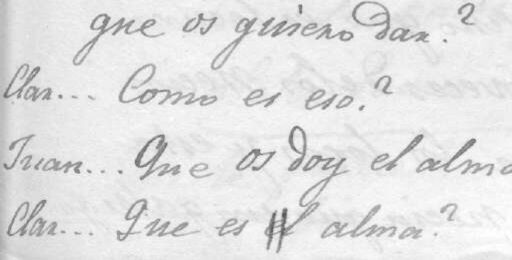 que os quiero dar.?
Clar... Como es eso.?
Juan... Que os doy el alma
Clar... Que es el alma.?